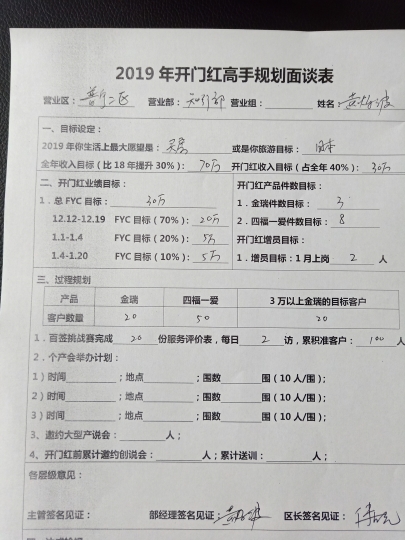 2019年开门红高手规划面谈表
营业区： 营业部： 营业组： 姓名：
一、目标设定：
2019年你生活上最大愿望是： 买房 或是你旅游目标： 日本
全年收入目标（比18年提升30%）： 70万 开门红收入目标（占全年40%）： 30万
二、开门红业绩目标：
1．总FYC目标： 30万
12.12-12.19 FYC目标（70%）： 20万
1.1-1.4 FYC目标（20%）： 5万
1.4-1.20 FYC目标（10%）： 5万
开门红产品件数目标：
1．金瑞件数目标： 3
2．四福一爱件数目标： 8
开门红增员目标：
1．增员目标：1月上岗 2 人
三、过程规划
产品 金瑞 四福一爱 3万以上金瑞的目标客户
客户数量 20 50 20
1．百签挑战赛完成 20 份服务评价表，每日 2 访，累积准客户： 100 人
2．个产会举办计划：
1）时间 ；地点 ；围数 围（10人/围）；
2）时间 ；地点 ；围数 围（10人/围）；
3）时间 ；地点 ；围数 围（10人/围）；
3、邀约大型产说会： 人；
4、开门红前累计邀约创说会： 人；累计送训： 人；
各层级意见：
主管签名见证： 部经理签名见证： 区长签名见证：